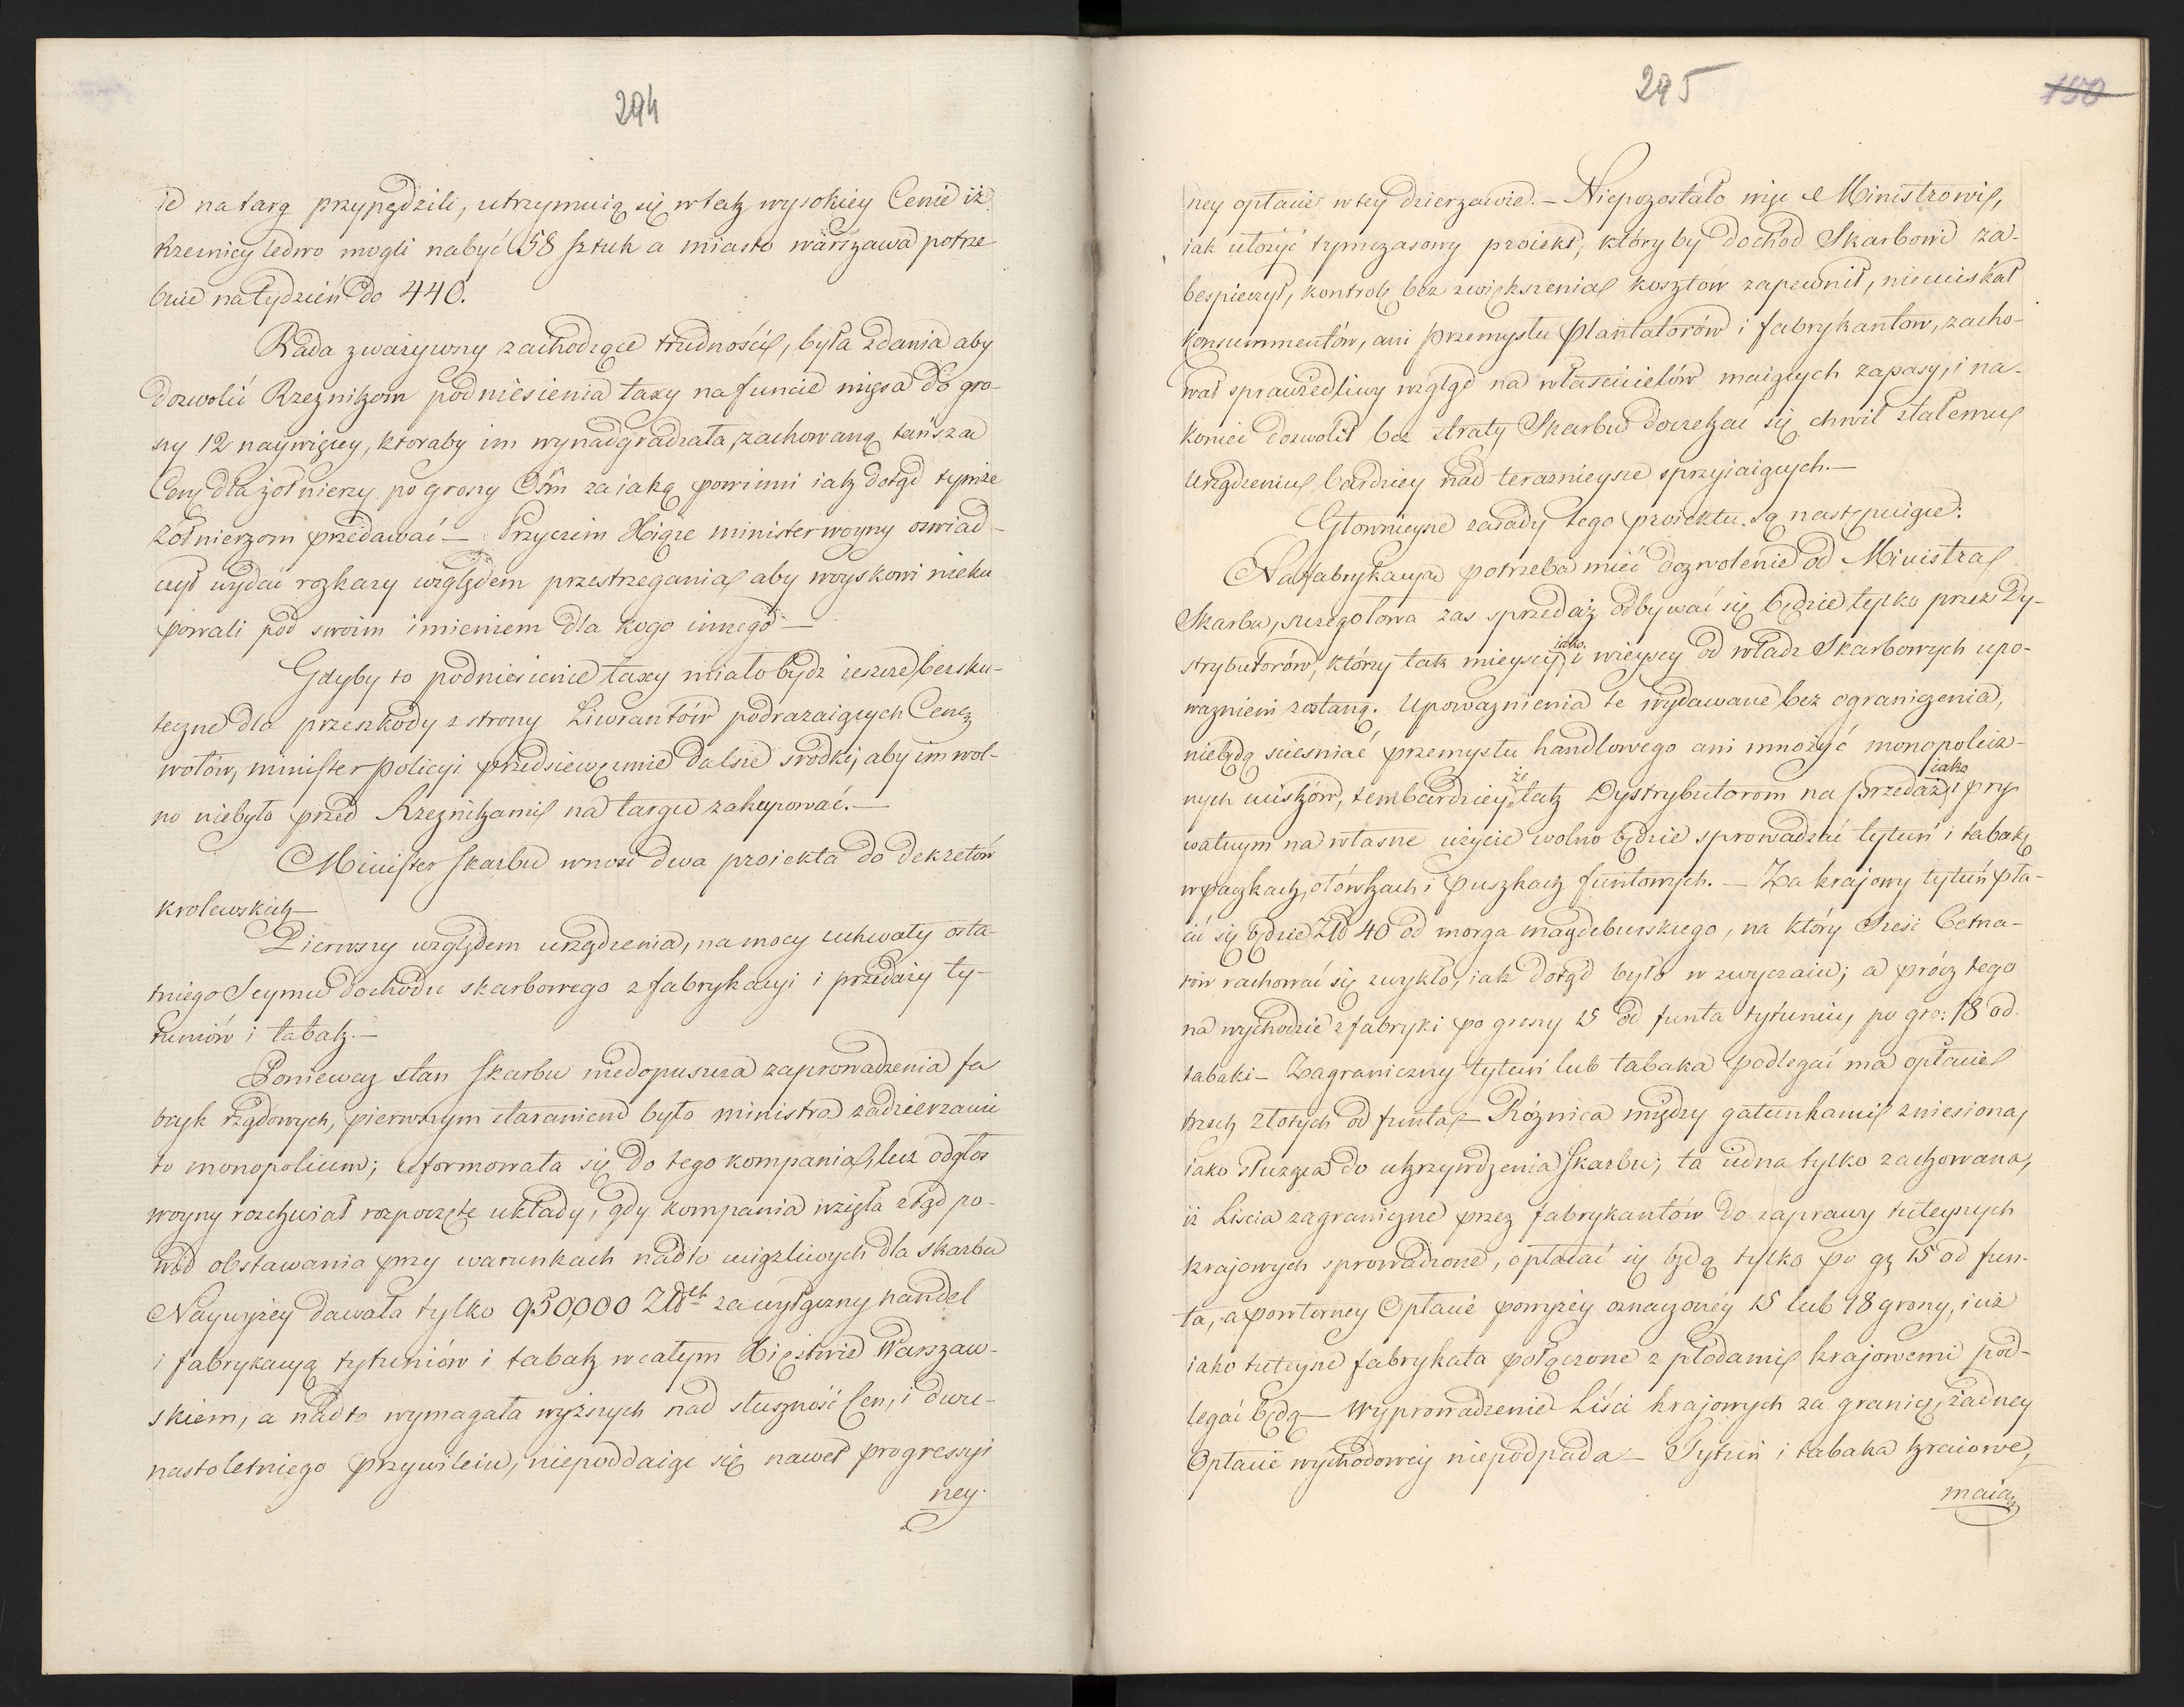 294
ie na targ przypędzili, utrzymuią się w tak wysokiey Cenie iż
Rzeznicy ledwo mogli nabyć 58 sztuk a miasto warszawa potrze
buie na tydzień do 440.
Rada zważywszy zachodzące trudności, była zdania aby
dozwolić Rzeznikom podniesienia taxy na funcie mięsa do gro-
szy 12 naywięcey, ktoraby im wynadgradzała zachowaną tańszą
Cenę dla żołnierzy po groszy Ośm za iaką powinni iak dotąd tymże
żołnierzom przedawać — Przyczem Xiąże minister woyny oswiad-
czył wydać rozkazy względem przestrzegania aby woyskowi nieku
powali pod swoim imieniem dla kogo innego —
Gdyby to podniesienie taxy miało bydz ieszcze bezsku-
teczne dla przeszkody z strony Liwerantów podrazaiących Cenę
wołów, minister policyi przedsiewezmie dalsze srodki, aby im wol-
no niebyło przed Rzeznikami na targu zakupować. —
Minister skarbu wnosi dwa proiekta do dekretów
krolewskich —
Pierwszy względem urządzenia, na mocy uchwały osta-
tniego Seymu dochodu skarbowego z fabrykacyi i przedaży ty-
tuniów i tabak. —
Poniewaz stan skarbu niedopuszcza zaprowadzenia fa
bryk rządowych, pierwszym staraniem było ministra zadzierzawić
to monopolium; uformowała się do tego kompania, lecz odgłos
woyny rozchwiał rozpoczęte układy, gdy kompania wzięła ztąd po-
wód obstawania przy warunkach nadto uciążliwych dla skarbu
Naywyżey dawała tylko 950,000 Złłch za wyłączny handel
i fabrykacyą tytuniów i tabak w całym Xięstwie Warszaw-
skiem, a nadto wymagała wyższych nad słuszność Cen, i dwu-
nastoletniego przywileiu, niepoddaiąc się nawet progressyi
ney
295
150
ney opłacie w tey dzierzawie. — Niepozostało więc Ministrowi,
iak ułożyć tymczasowy proiekt, któryby dochod Skarbowi za-
bespieczył, kontrolę bez zwiększenia kosztów zapewnił, nieuciskał
konsummentów, ani przemysłu Plantatorów i fabrykantów, zacho-
wał sprawiedliwy wzgląd na właścicielów maiących zapasy, i na-
koniec dozwolił bez straty Skarbu doczekać się chwil stałemu
urządzeniu, bardziey nad teraznieysze sprzyiaiących. —
Głownieysze zasady tego proiektu są następuiące:
Na fabrykacyą potrzeba mieć dozwolenie od Ministra
Skarbu, szczegołowa zas sprzedaż odbywać się będzie tylko przez Dy-
strybutorów, którzy tak mieyscy iako i wieyscy od władz Skarbowych upo-
waznieni zostaną. Upowaznienia te wydawane bez ograniczenia,
niebędą sciesniać przemysłu handlowego ani mnożyć monopolicz-
nych ucisków, tembardziey że tak Dystrybutorom na przedaż iako i pry
watnym na własne użycie wolno będzie sprowadzać tytuń i tabakę
w paczkach, ołówkach i puszkach funtowych. — Za krajowy tytuń pła-
cić się będzie Złł 40 od morga magdeburskiego, na który Sześć Cetna-
rów rachować się zwykło, iak dotąd było w zwyczaiu; a prócz tego
na wychodzie z fabryki po groszy 15 od funta tytuniu, po gro: 18 od
tabaki — Zagraniczny tytuń lub tabaka podlegać ma opłacie
trzech złotych od funta — Róznica między gatunkami zniesiona,
iako służąca do ukrzywdzenia Skarbu; ta iedna tylko zachowana,
iż Liscia zagraniczne przez fabrykantów do zaprawy tuteyszych
krajowych sprowadzone, opłacać się będą tylko po gr 15 od fun-
ta, a powtorney Opłacie powyżey oznaczoney 15 lub 18 groszy, iuż
iako tuteysze fabrykata połączone z płodami krajowemi pod-
legać będą — Wyprowadzenie Liści krajowych za granicę, żadney
Opłacie wychodowey niepodpada — Tytuń i tabaka kraiowe,
maią